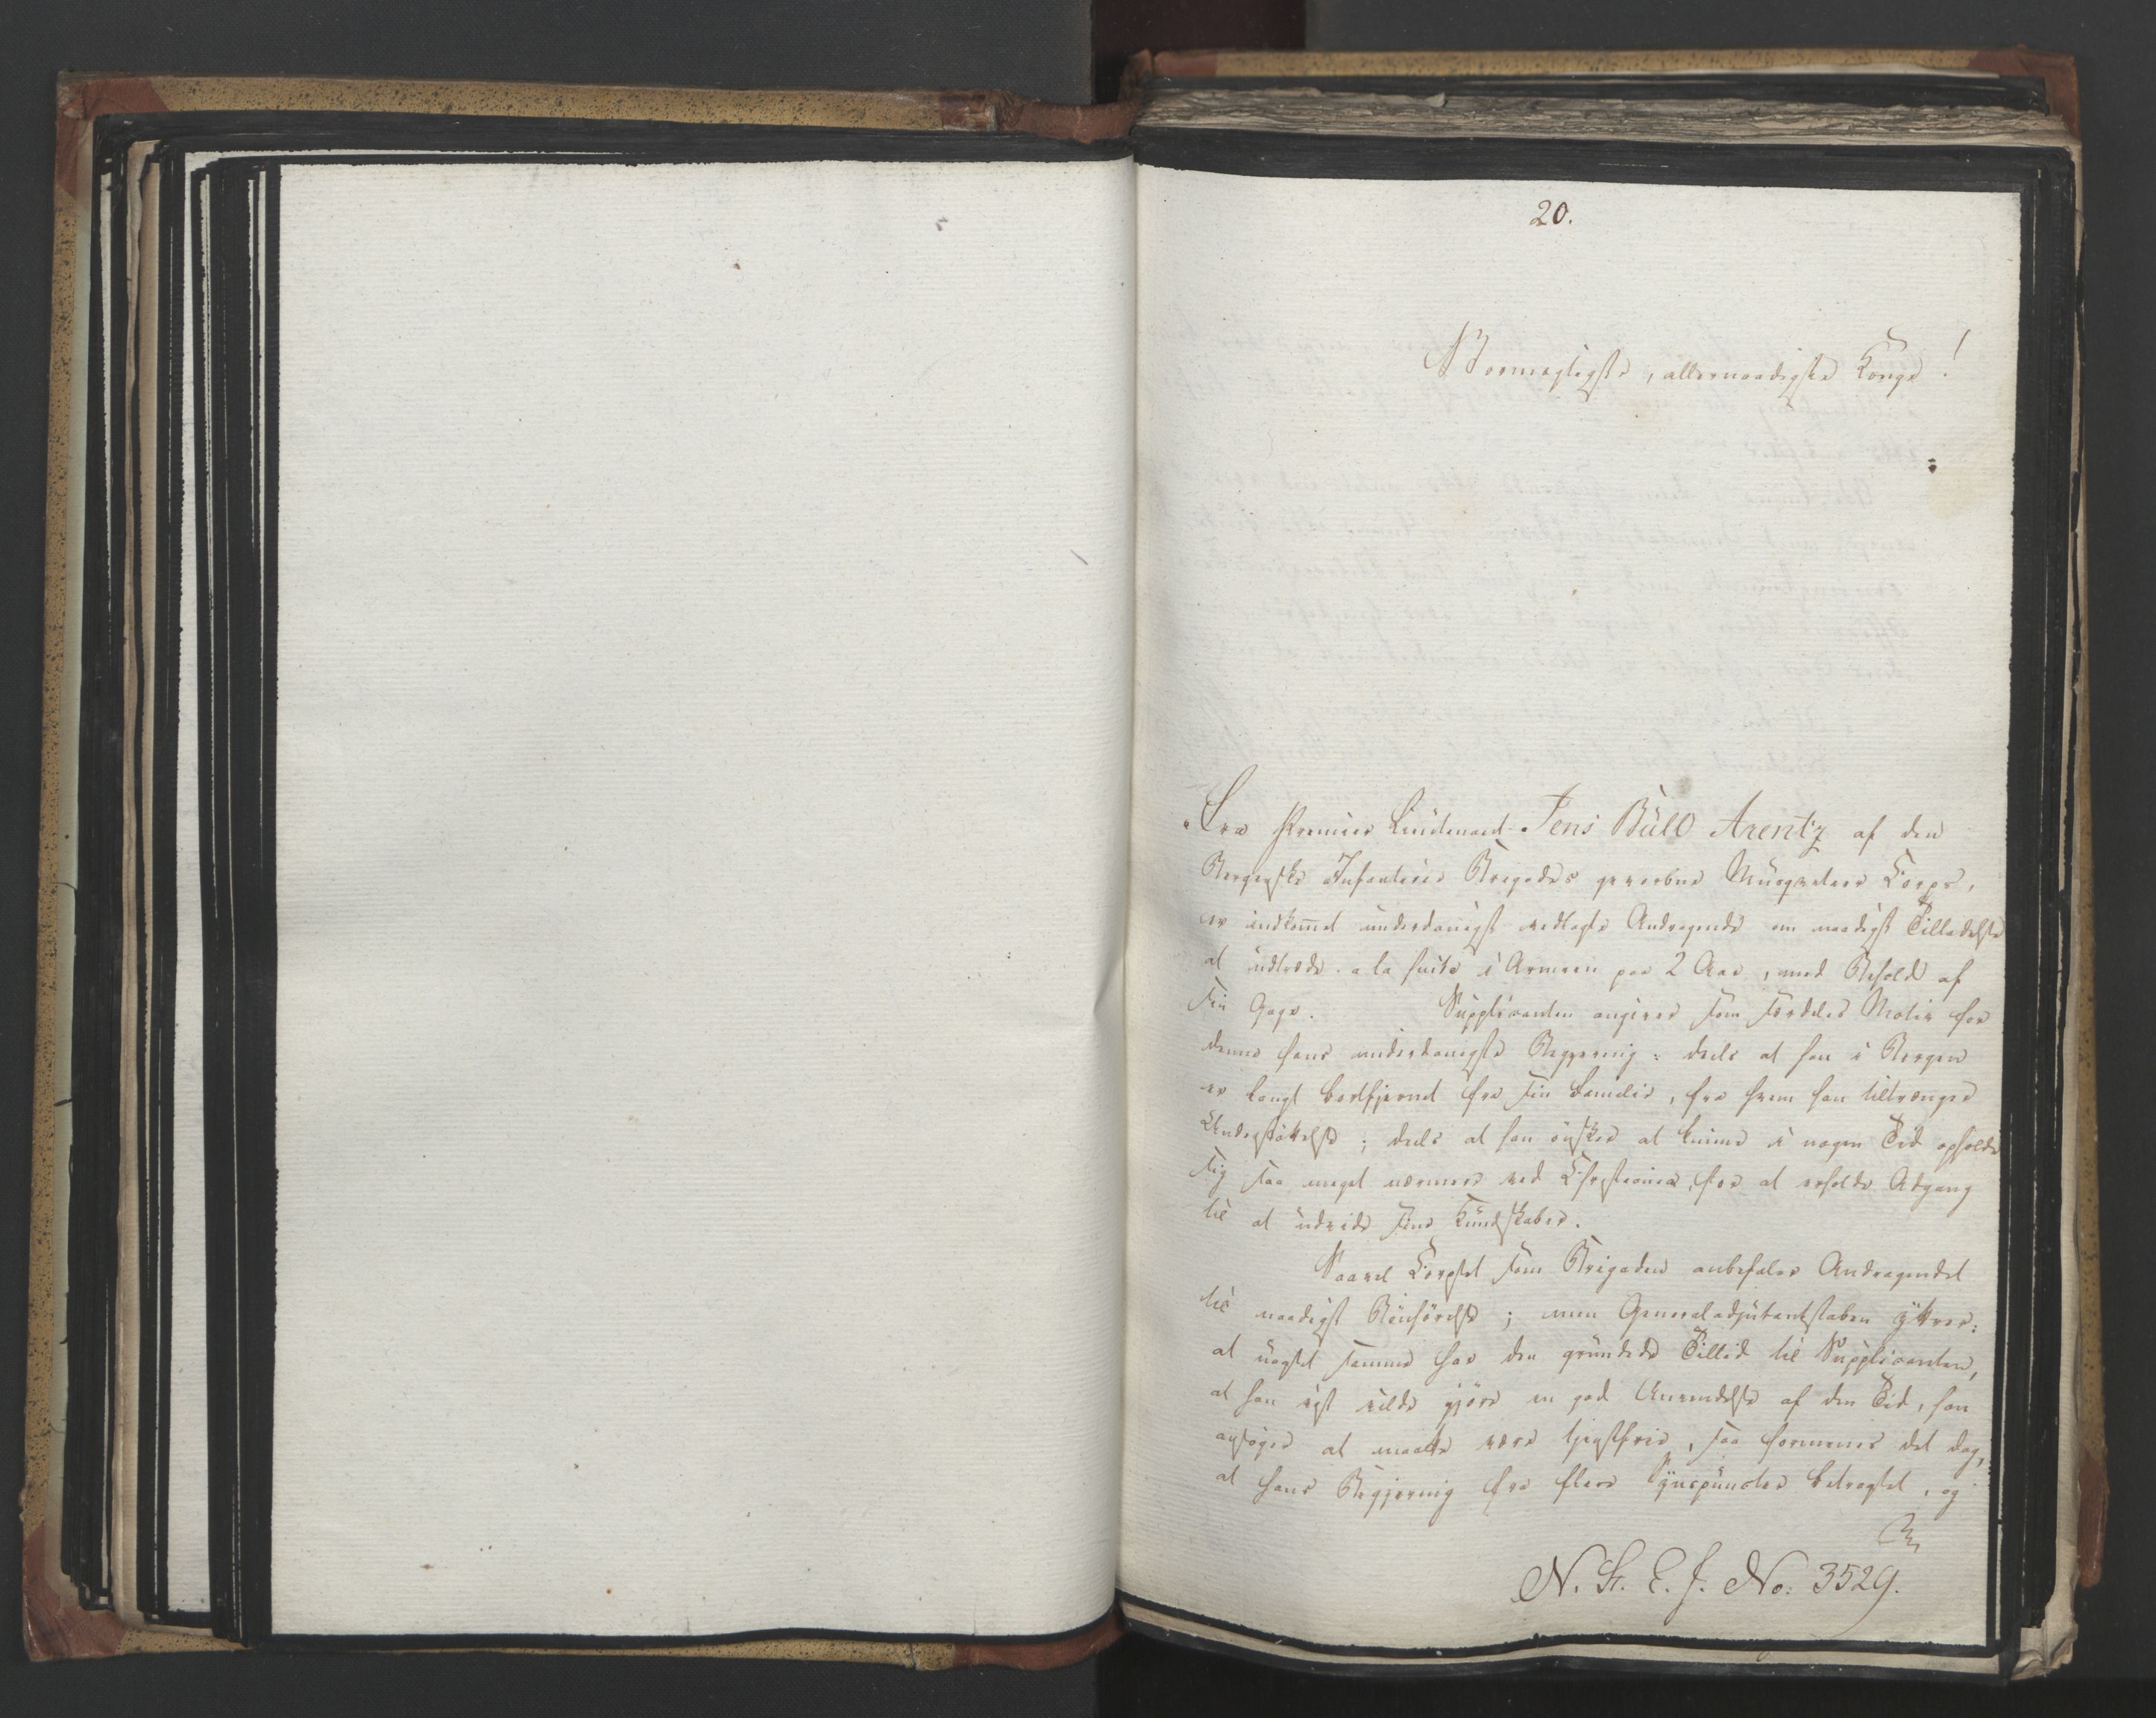 20.
Stormægtigste, allernaadigste Konge!
Fra Premier Lieutenant Jens Büll Arentz af den
Bergenske Infanterie Brigades gevorbne Musqueteer Corps,
er indkom̅et underdanigst vedlagte Andragende om naadigst Tilladelse
at udtræde a la suite i Armeen paa 2 Aar, med Behold af
sin Gage. Supplicanten angiver som særdeles Motiv for
denne hans underdanigste Begjæring: deels at han i Bergen
er langt bortfjernet fra sin Familie, fra hvem han tiltrænger
Understøttelse; deels at han ønsker at kunne i nogen Tid opholde
sig saa meget nærmere ved Christiania, for at erholde Adgang
til at udvide sine Kundskaber.
Saavel Corpset som Brigaden anbefaler Andragendet
til naadigst Bønhørelse; men Generaladjutantstaben yttrer:
at uagtet samme har den grundede Tillid til Supplicanten,
at han vist vilde gjøre en god Anvendelse af den Tid, han
ansøger at maatte være tjenstfrie, saa formenes det dog,
at hans Begjæring fra flere Synspuncter betragtet, og
N. St. E. J. No: 3529.